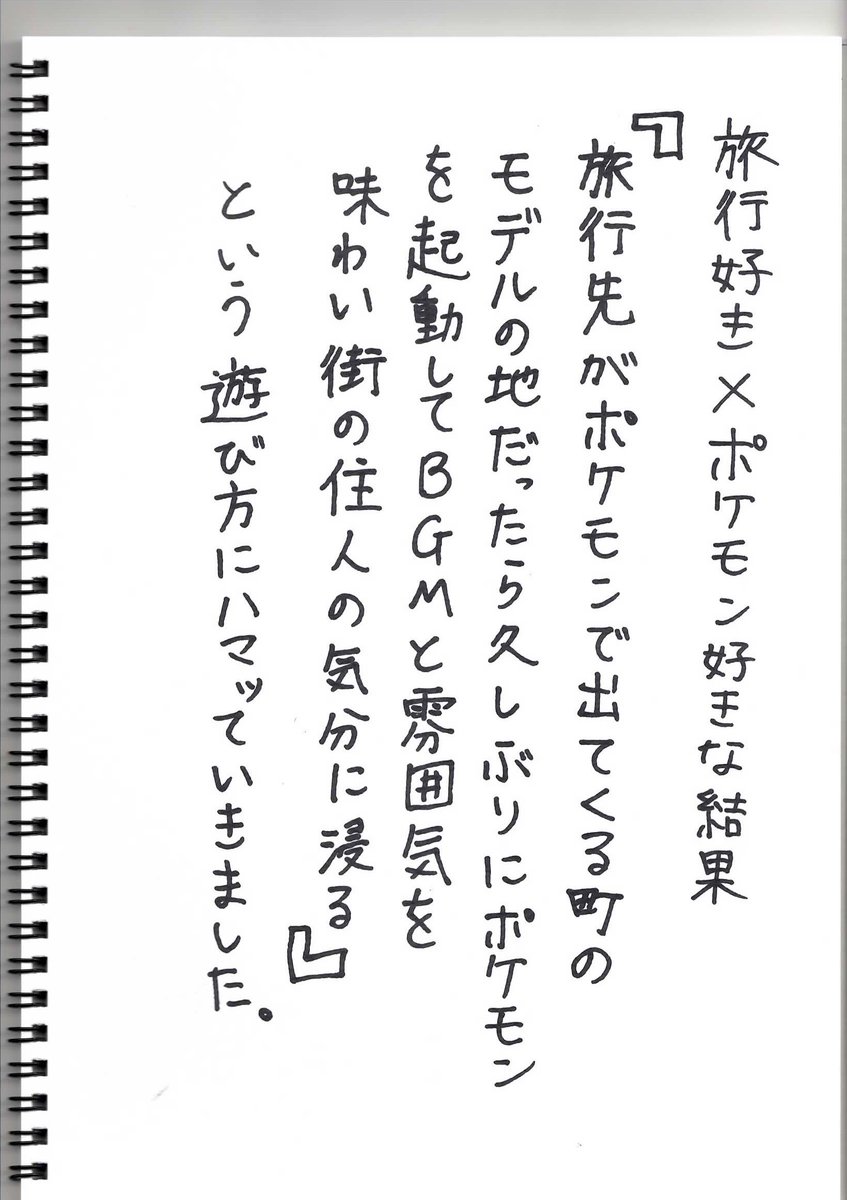 旅行好き×ポケモン好きな結果
『旅行先がポケモンで出てくる町の
モデルの地だったら久しぶりにポケモン
を起動してBGMと雰囲気を
味わい街の住人の気分に浸る』
という遊び方にハマッていきました。